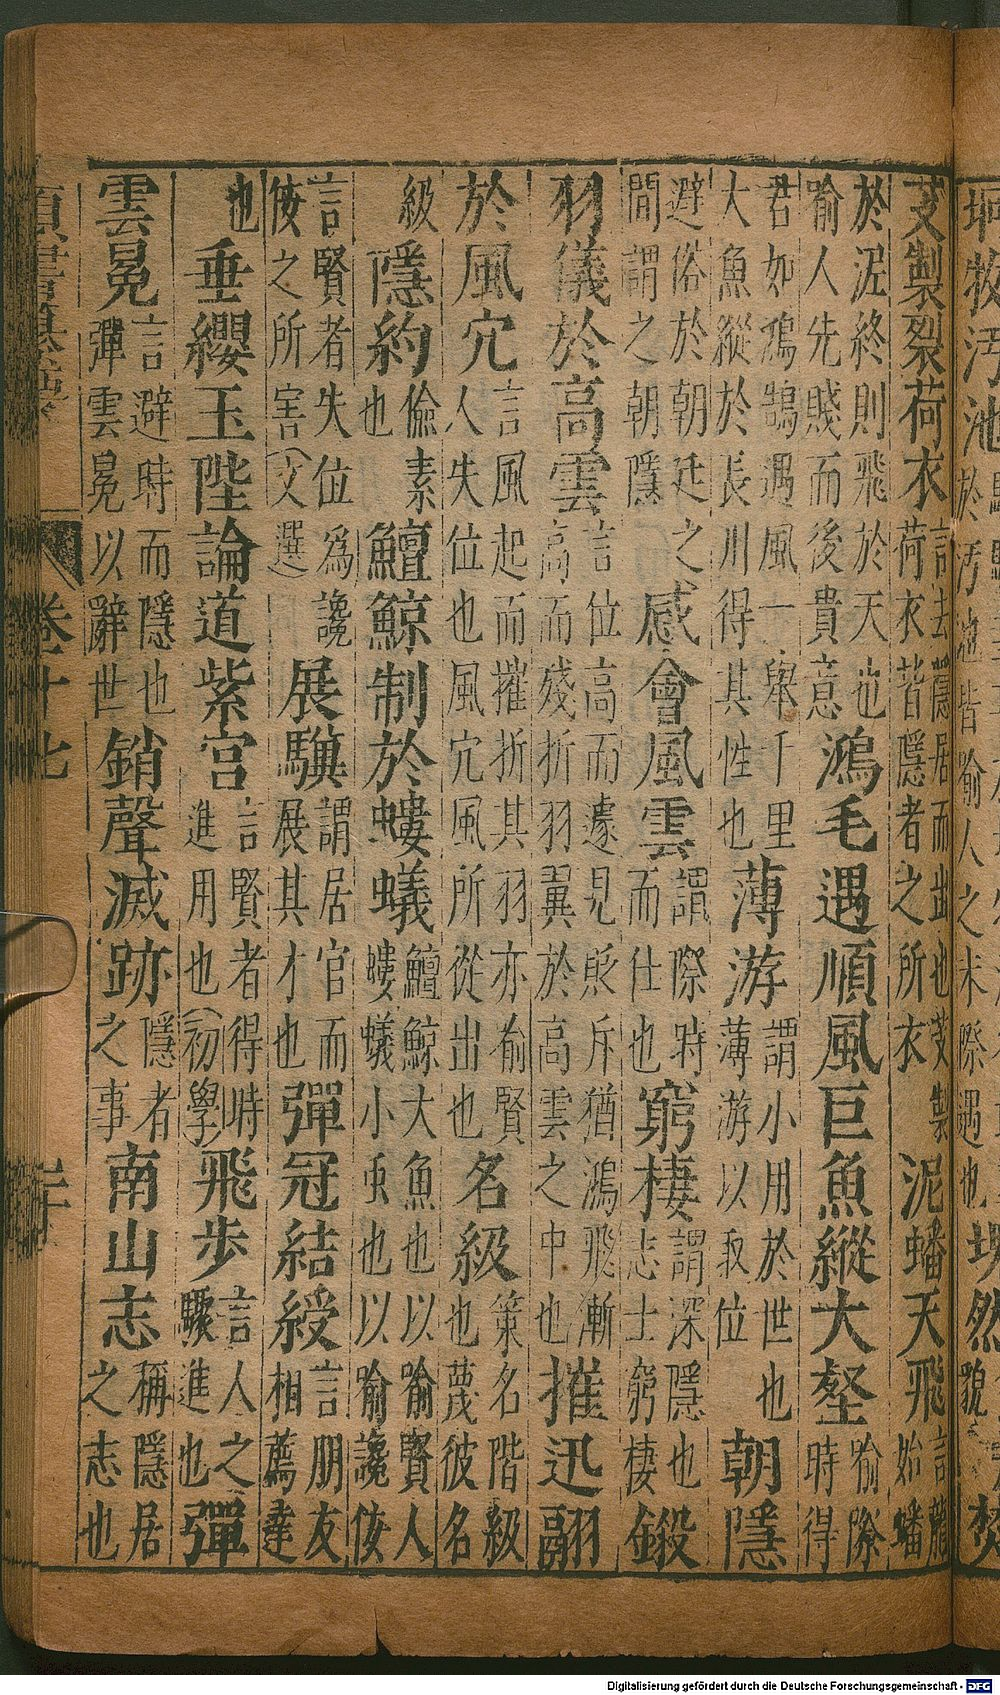 坰牧汚池
於汚池皆喻人之未際遇也
芰製裂荷衣
言去隱居而出也芰製
荷衣皆隱者之所衣
泥蟠天飛
言龍
始蟠
於泥終則飛於天也
喻人先賤而後貴意
鴻毛遇順風巨魚縱大壑
喻際
時得
君如鴻鵠遇風一舉千里
大魚縱於長川得其性也
薄游
謂小用於世也
薄游以取位
朝隱
避俗於朝廷之
間謂之朝隱
感會風雲
謂際時
而仕也
窮棲
謂深隱也
志士窮棲
鎩
羽儀於高雲
言位高而遽見貶斥猶鴻飛漸
高而殘折羽翼於高雲之中也
摧迅翮
於風穴
言風起而摧折其羽亦喻賢
人失位也風穴風所從出也
名級
策名階級
也蔑彼名
級
隱約
儉素
也
鱣鯨制於螻蟻
鱣鯨大魚也以喻賢人
螻蟻小虫也以喻讒佞
言賢者失位為讒
佞之所害(文選)
展驥
謂居官而
展其才也
彈冠結綬
言朋友
相薦達
也
垂纓玉陛論道紫宮
言賢者得時
進用也(初學)
飛步
言人之
驟進也
彈
雲冕
言避時而隱也
彈雲冕以辭世
銷聲滅跡
隱者
之事
南山志
稱隱居
之志也
卷十七
Digitalisierung gefördert durch die Deutsche Forschungsgemeinschaft - DFG